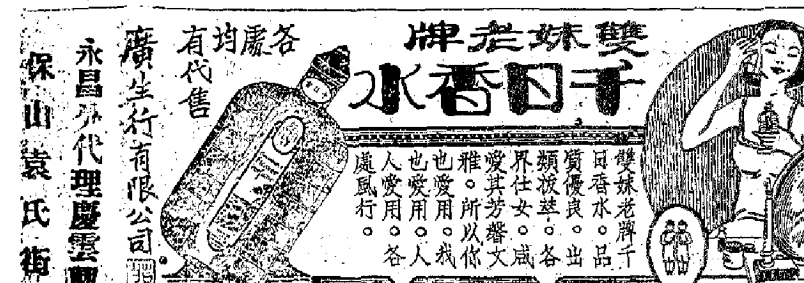 雙妹老牌
千日香水
雙妹老牌千
日香水。品
質優良。出
類拔萃。各
界仕女。咸
愛其芳馨文
雅。所以你
也愛用。我
也愛用。人
人愛用。各
處風行。
各處均有
代售
廣生行有限公司
永昌代理慶雲
保山袁氏街